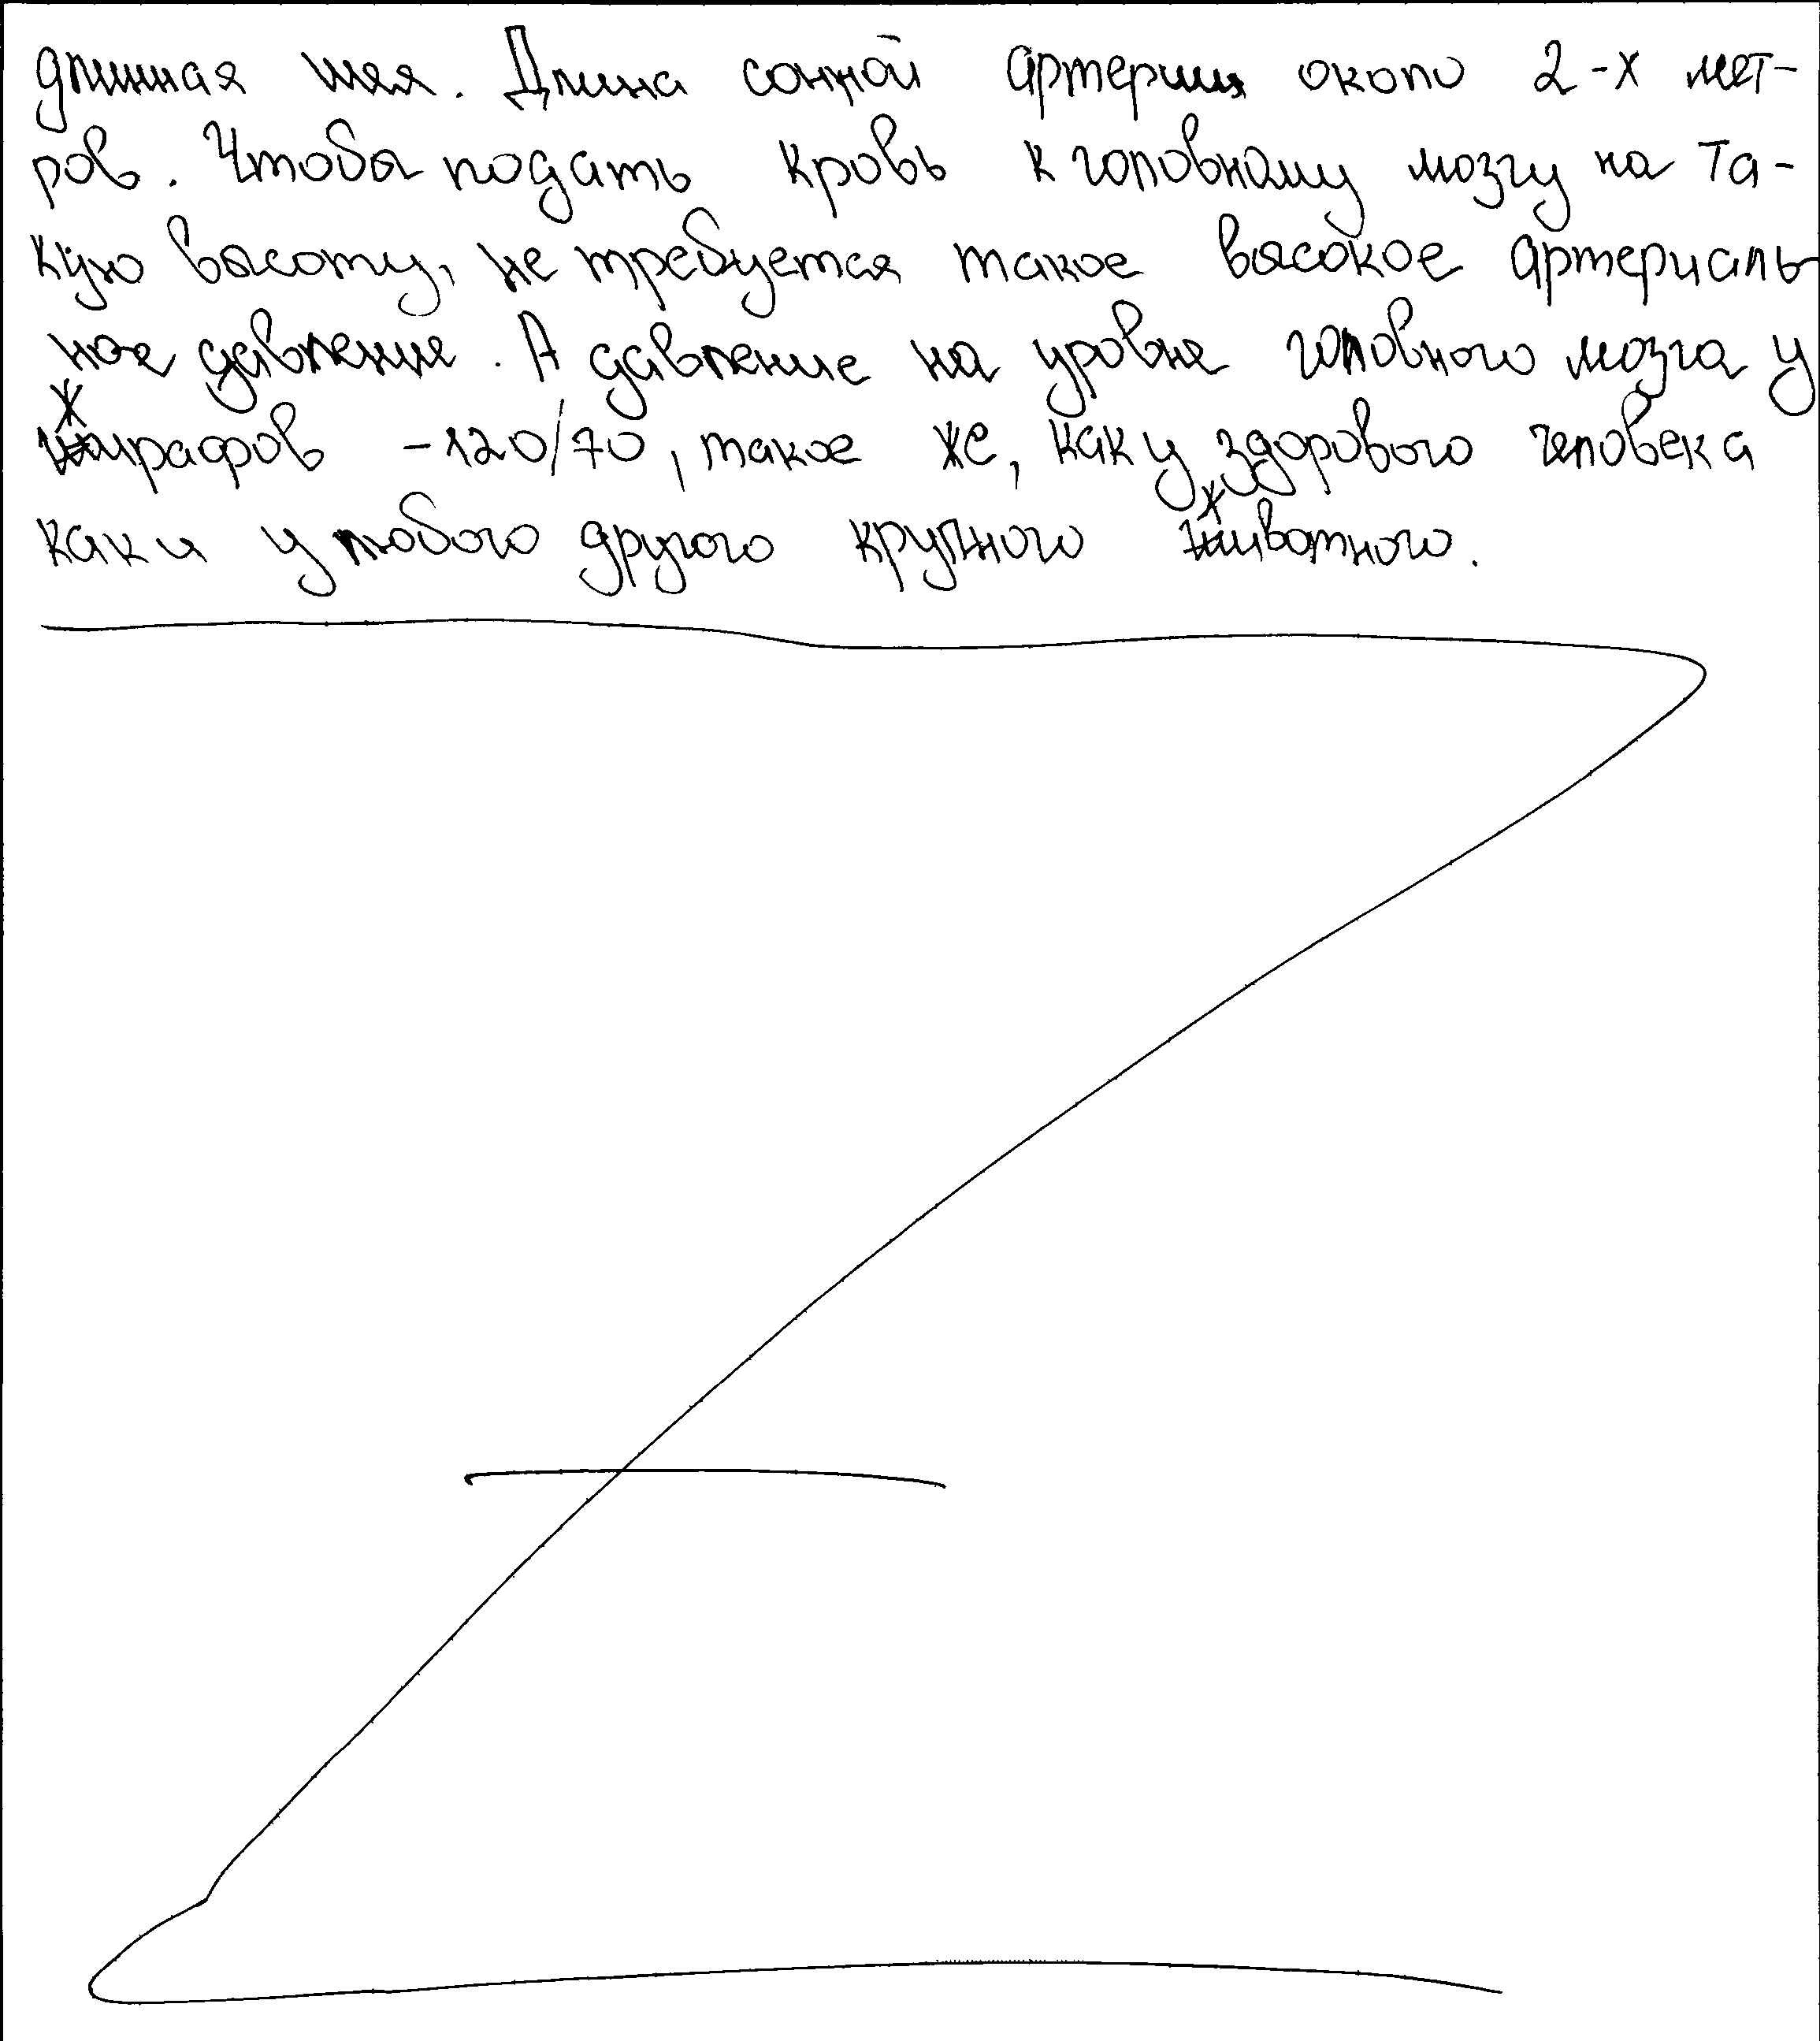 длинная шея. Длина сонной артерии около 2-х мет-
ров. Чтобы подать кровь к головному мозгу на та-
кую высоту, не требуется такое высокое артериаль
ное давление. А давление на уровне головного мозга у
жирафов -120/70, такое же, как у здорового человека
как и у любого другого крупного животного.